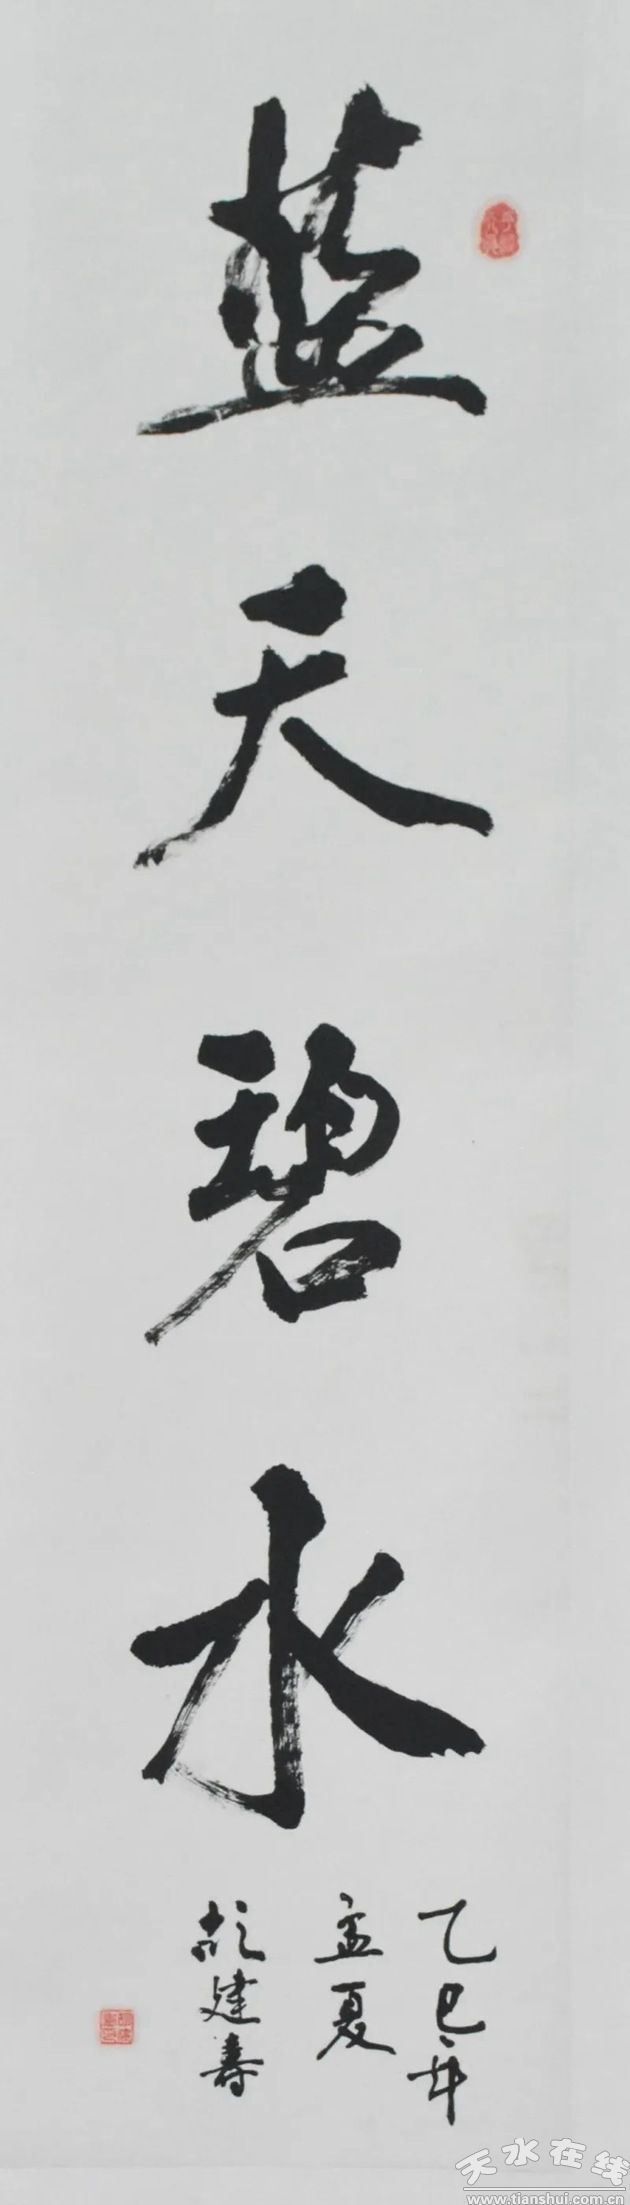 蓝天碧水
乙巳年
孟夏
胡建寿
天水在线
www.tianshui.com.cn